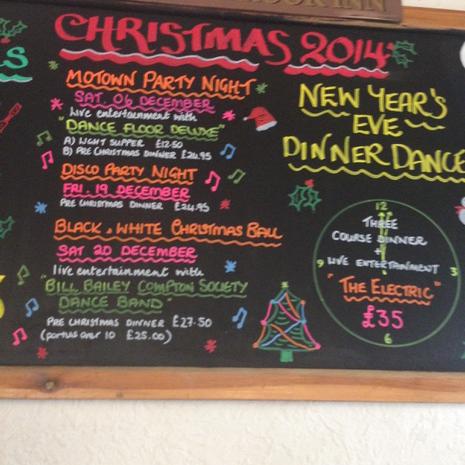 INN
CHRISTMAS 2014
S
MOTOWN PARTY NIGHT
SAT. 06 DECEMBER
live entertainment with
"DANCE FLOOR DELUXE"
A) LIGHT SUPPER £12.50
B) PRE CHRISTMAS DINNER £24.95
DISCO PARTY NIGHT
FRI. 19 DECEMBER
PRE CHRISTMAS DINNER £24.95
BLACK & WHITE CHRISTMAS BALL
SAT 20 DECEMBER
live entertainment with
"BILL BAILEY COMPTON SOCIETY
DANCE BAND"
PRE CHRISTMAS DINNER £27.50
(parties over 10 £25.00)
NEW YEAR'S
EVE
DINNER DANCE
12
THREE
COURSE DINNER
+
LIVE ENTERTAINMENT
9
3
"THE ELECTRIC"
£35
6